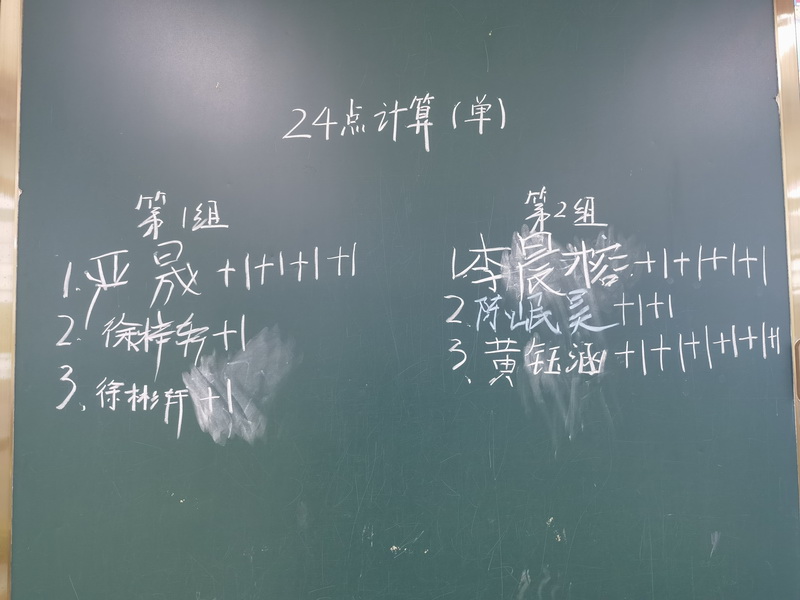 24点计算(单)
第1组
1.严晟 +1+1+1+1
2.徐梓轩+1
3、徐彬轩+1
第2组
1.李晨榕+1+1+1+1
2.陈岷昊+1+1
3、黄钰涵+1+1+1+1+1+1